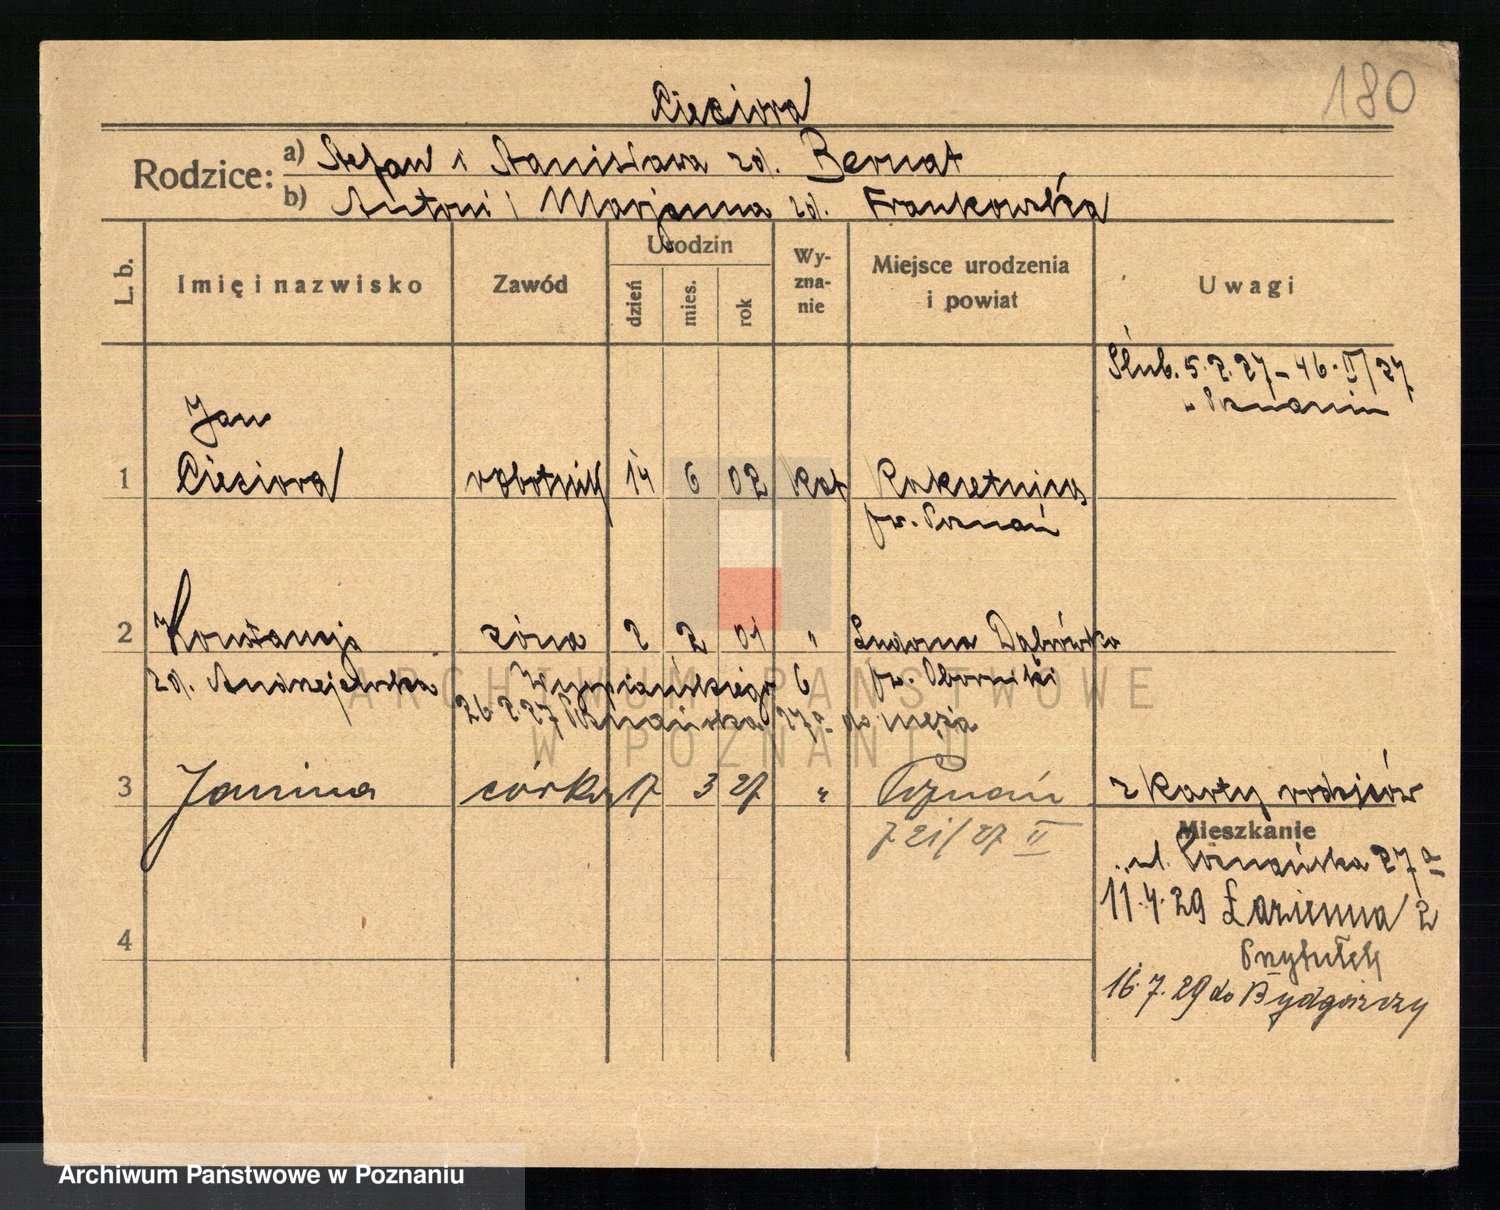 180
Cieciora
Rodzice: a) Stefan i Stanisława zd. Bernat
b) Antoni i Marjanna zd. Frankowska
L. b. Imię i nazwisko Zawód Urodzin dzień mies. rok Wyznanie Miejsce urodzenia i powiat Uwagi
Ślub. 5.2.27 – 46.II/27
w Poznaniu
Jan
1 Cieciora robotnik 14 6 02 kat Rokietnica
pw. Poznań
2 Konstancja żona 2 2 01 " Dąbrówka
zd. Andrzejewska Wyspiańskiego 6 pw. Oborniki
26.2.27 Poznańska 27a do męża
3 Janina córka 17 3 27 " Poznań z karty rodziców
/27 II
Mieszkanie
ul. Poznańska 27a
11.4.29 Łazienna 2
Przytułek
4
16.7.29 do Bydgoszczy
ARCHIWUM PAŃSTWOWE
W POZNANIU
Archiwum Państwowe w Poznaniu